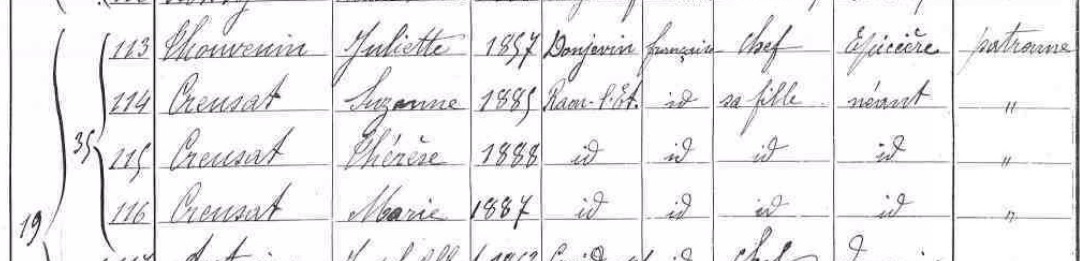 113 Thouvenin Juliette 1857 Donjevin française chef Epicière patronne
114 Creusat Suzanne 1885 Raon-l'Et. id sa fille néant "
35 115 Creusat Thérèse 1888 id id id id "
19 116 Creusat Marie 1887 id id id id "